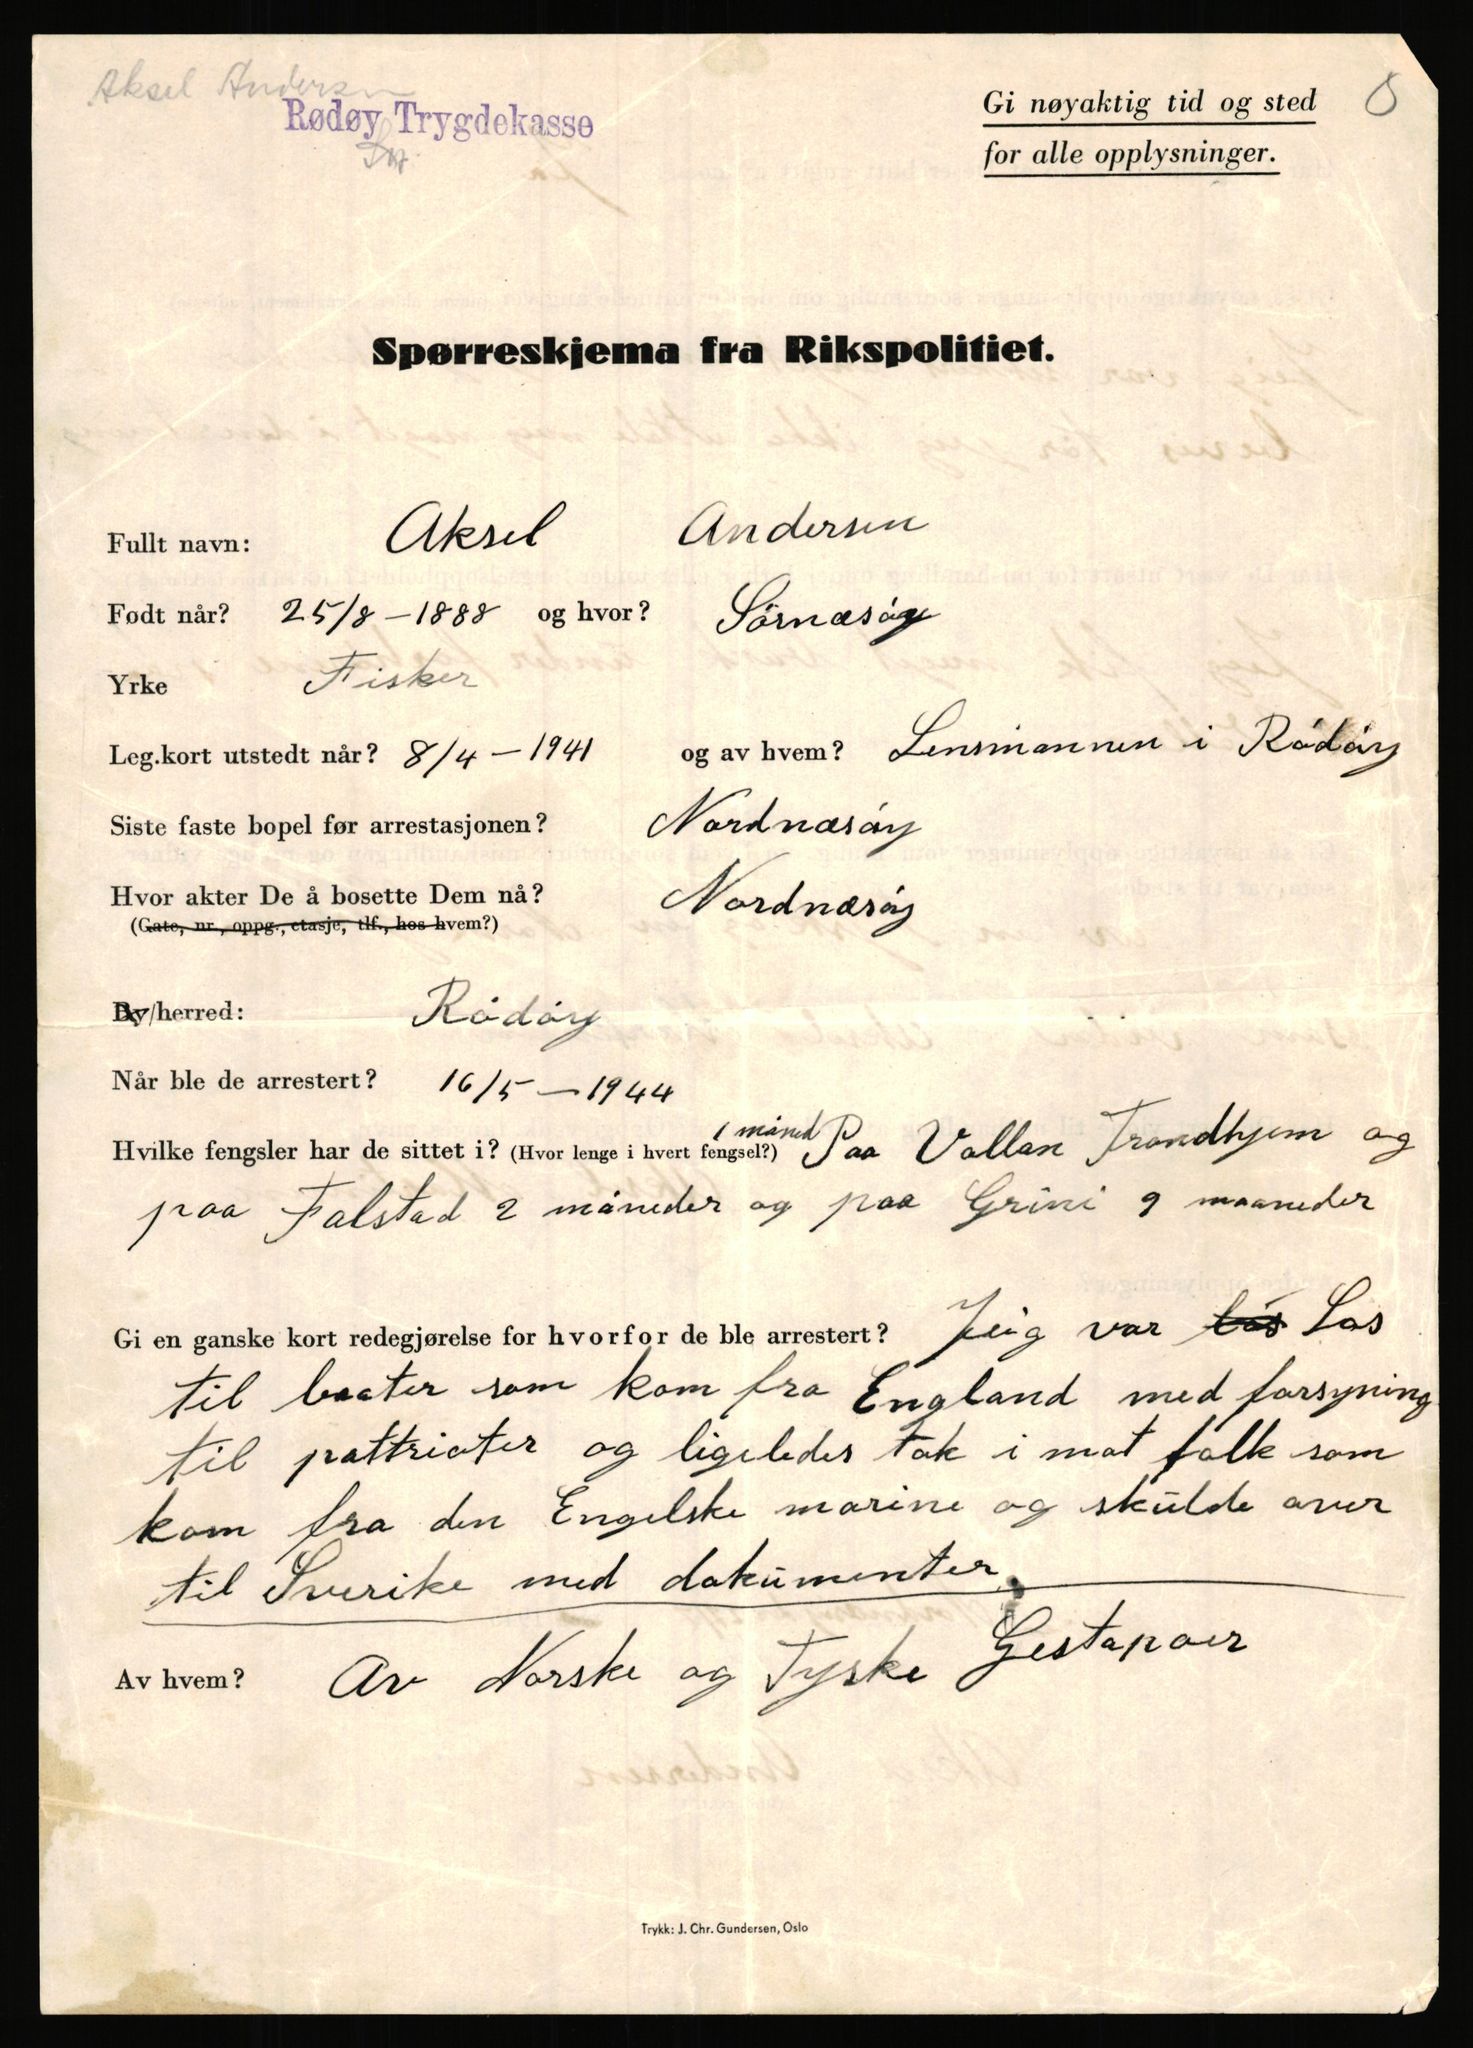 Aksel Andersen
Rødøy Trygdekasse
Gi nøyaktig tid og sted
for alle opplysninger.
Spørreskjema fra Rikspolitiet.
Fullt navn: Aksel Andersen
Født når? 25/8 - 1888 og hvor? Sörnæsöy
Yrke Fisker
Leg.kort utstedt når? 8/4 - 1941 og av hvem? Lensmannen i Rödöy
Siste faste bopel før arrestasjonen? Nordnæsöy
Hvor akter De å bosette Dem nå? Nordnæsöy
(Gate, nr., oppg., etasje, tlf., hos hvem?)
By/herred: Rödöy
Når ble de arrestert? 16/5 - 1944
Hvilke fengsler har de sittet i? (Hvor lenge i hvert fengsel?) 1 måned Paa Vollan Trondhjem og
paa Falstad 2 måneder og paa Grini 9 maaneder
Gi en ganske kort redegjørelse for hvorfor de ble arrestert? Jeig var los Los
til baater som kom fra England med forsyning
til pattrioter og ligeledes tok i mot folk som
kom fra den Engelske marine og skulde over
til Sverike med dokumenter.
Av hvem? Av Norske og Tyske Gestapoer
Trykk: J. Chr. Gundersen, Oslo